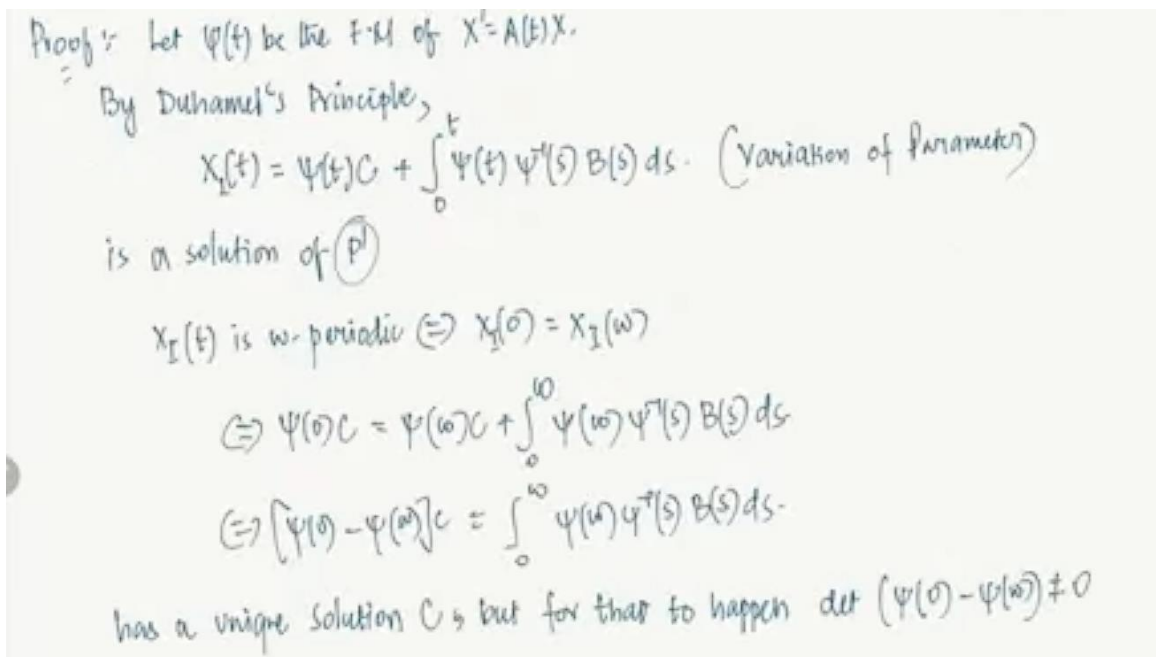 Proof :- Let Ψ(t) be the F.M of X' = A(t)X.
By Duhamel's Principle,
X_I(t) = Ψ(t)C + ∫_0^t Ψ(t) Ψ^{-1}(s) B(s) ds. (Variation of Parameter)
is a solution of (P')
X_I(t) is w-periodic ⇔ X_I(0) = X_I(ω)
⇔ Ψ(0)C = Ψ(ω)C + ∫_0^ω Ψ(ω) Ψ^{-1}(s) B(s) ds
⇔ [Ψ(0) - Ψ(ω)]C = ∫_0^ω Ψ(ω) Ψ^{-1}(s) B(s) ds.
has a unique solution C, but for that to happen det (Ψ(0) - Ψ(ω)) ≠ 0